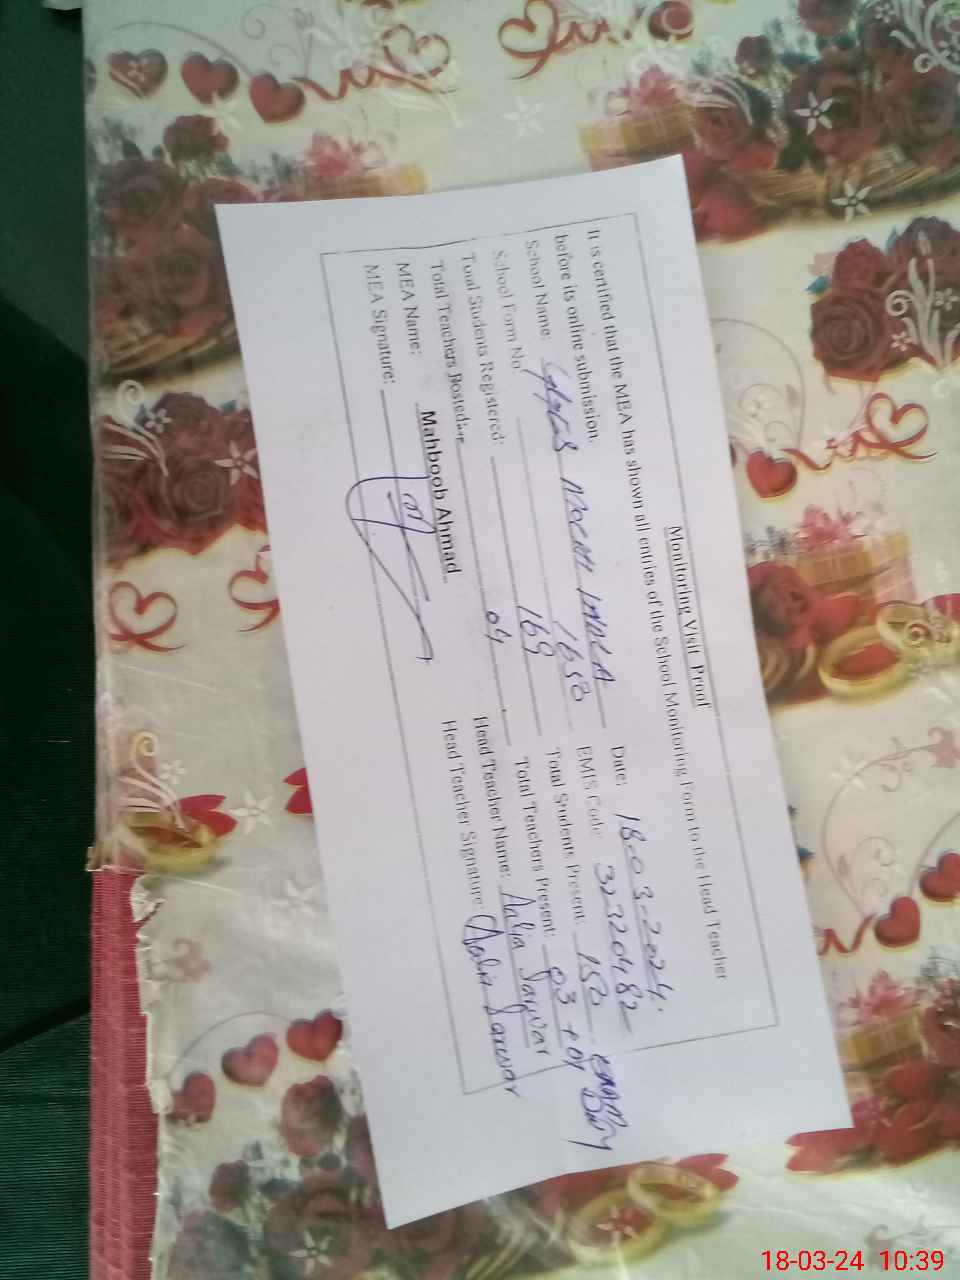 Monitoring Visit Proof
It is certified that the MEA has shown all entries of the School Monitoring Form to the Head Teacher
before its online submission.
School Name: Date: 18-03-2024
School Form No: 1650 EMIS Code: 32320482
Total Students Registered: 169 Total Students Present: 150
Total Teachers Posted: 04 Total Teachers Present: 03 + 01
MEA Name: Mahboob Ahmad Head Teacher Name: Aalia Sarwar
MEA Signature: Head Teacher Signature: Aalia Sarwar
18-03-24 10:39